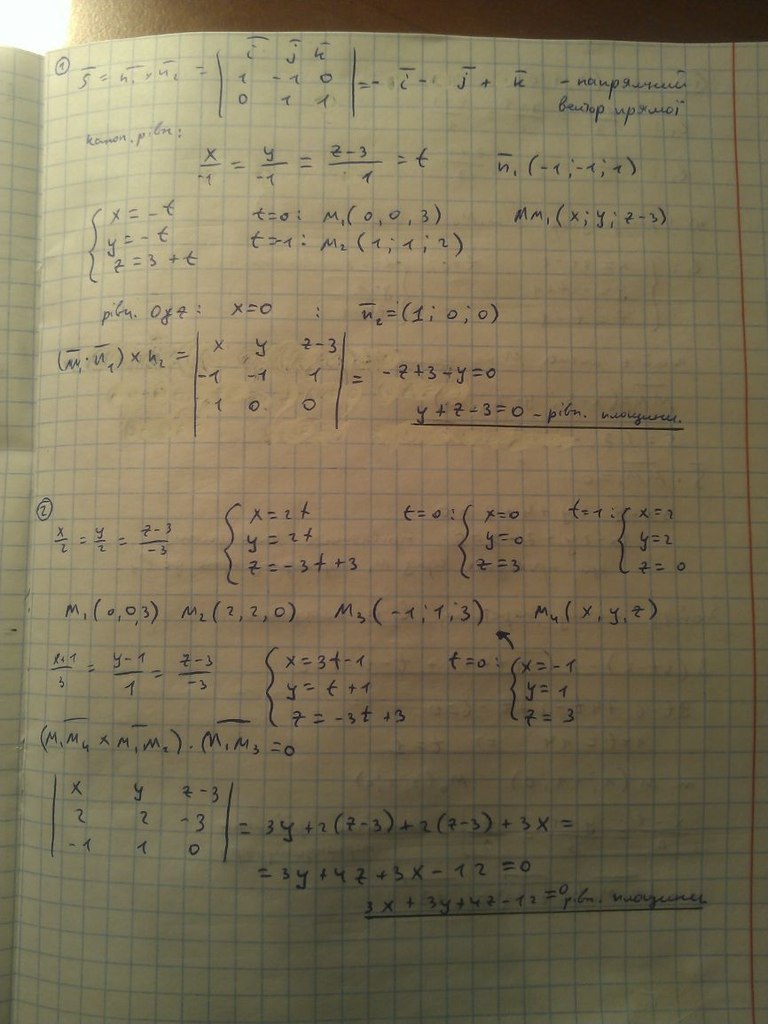 ① s̄ = n̄₁ × n̄₂ = | ī j̄ k̄ ; 1 -1 0 ; 0 1 1 | = - ī - j̄ + k̄ - напрямний
вектор прямої
канон. рівн:
x/-1 = y/-1 = z-3/1 = t n̄₁ (-1; -1; 1)
{ x = -t t=0: M₁(0, 0, 3) MM₁(x; y; z-3)
y = -t t=-1: M₂(1; 1; 2)
z = 3 + t
рівн. Oyz: x=0 : n̄₂=(1; 0; 0)
× n₂ = | x y z-3 ; -1 -1 1 ; 1 0 0 | = -z+3-y=0
y+z-3=0 - рівн. площини.
② x/2 = y/2 = z-3/-3 { x=2t ; y=2t ; z=-3t+3 t=0: { x=0 ; y=0 ; z=3 t=1: { x=2 ; y=2 ; z=0
M₁(0,0,3) M₂(2,2,0) M₃(-1;1;3) M₄(x,y,z)
x+1/3 = y-1/1 = z-3/-3 { x=3t-1 ; y=t+1 ; z=-3t+3 t=0: { x=-1 ; y=1 ; z=3
(M₁M₄ × M₁M₂) · M₁M₃ = 0
| x y z-3 ; 2 2 -3 ; -1 1 0 | = 3y+2(z-3)+2(z-3)+3x=
= 3y+4z+3x-12=0
3x+3y+4z-12=0 рівн. площини